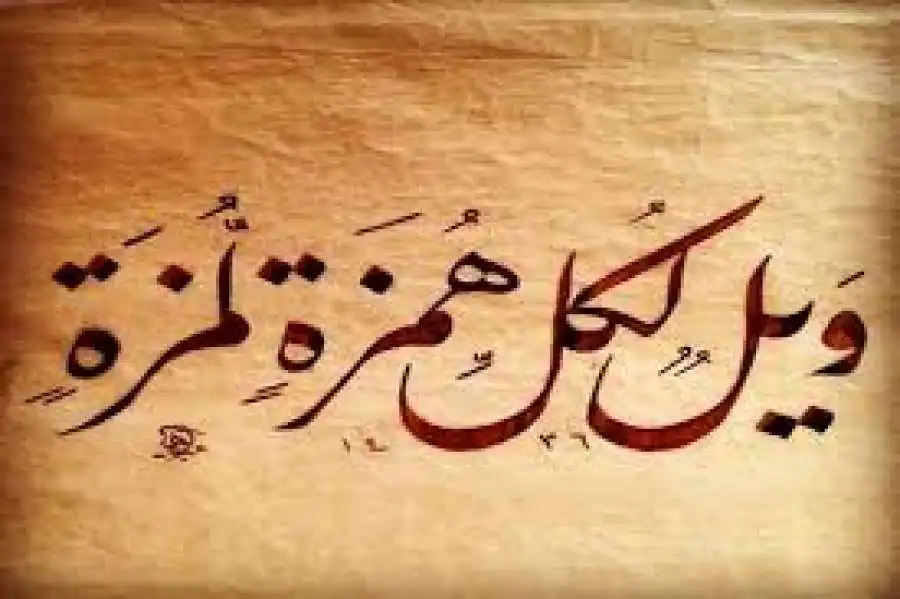 وَيلٌ لكُلِّ هُمَزَةٍ لُّمَزَةٍ
١٤٣٦